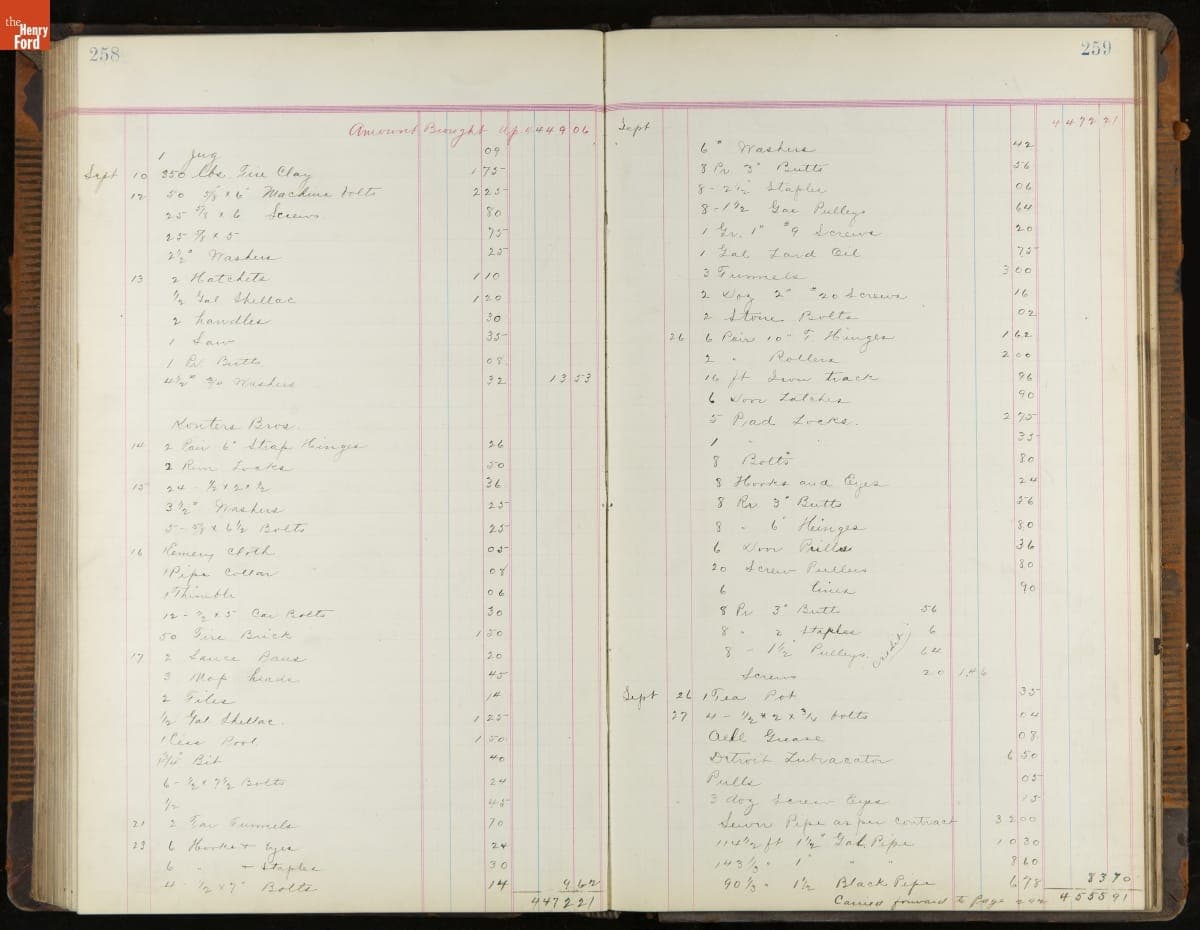 the Henry Ford
258
Amount Brought Up 4449 06
1 Jug 09
Sept 10 350 lbs. Fire Clay 1 75
12 50 5/8 x 6 Machine bolts 2 25
25 5/8 x 6 Screws 80
25 5/8 x 5 75
2 1/2" Washers 25
13 2 Hatchets 1 10
1/2 Gal Shellac 1 20
2 handles 30
1 Saw 35
1 Pr. Butts 08
4 1/2" Washers 32 13 53
Konters Bros.
14 2 Pair 6" Strap Hinges 26
2 Rim Locks 50
15 24 - 1/2 x 2 x 1/2 36
3 1/2" Washers 25
5 - 5/8 x 6 1/2 Bolts 25
16 Kemery Cloth 05
1 Pipe Collar 08
1 Thimble 06
12 - 1/2 x 5 Car Bolts 30
50 Fire Brick 1 50
17 2 Sauce Pans 20
3 Mop heads 45
2 Files 14
1/2 Gal Shellac. 1 25
1 Cess Pool 1 50
3/4" Bit 40
6 - 1/2 x 7 1/2 Bolts 24
1/2 45
21 2 Tar Funnels 70
23 6 Hooks + Eyes 24
6 " + Staples 30
4 - 1/2 x 7" Bolts 14 9 62
4472 21
259
Sept 4472 21
6" Washers 42
8 Pr 3" Butts 56
8 - 2 1/2 Staples 06
8 - 1 1/2 Gal Pulleys 64
1 Gr. 1" #9 Screws 20
1 Gal Lard Oil 75
3 Funnels 3 00
2 Doz 2" #20 Screws 16
2 Stone Bolts 02
26 6 Pair 10" T. Hinges 1 62
2 " Rollers 2 00
16 ft Iron track 96
6 Door Latches 90
5 Pad Locks. 2 75
1 " 35
8 Bolts 80
8 Hooks and Eyes 24
8 Pr 3" Butts 56
8 " 6" Heinges 80
6 Door Pulls 36
20 Screw Pulleys 80
6 lines 90
8 Pr 3" Butts 56
8 " 2 Staples 6
8 - 1 1/2" Pulleys. 64
Screws 20 1 46
Sept 26 1 Tea Pot 35
27 4 - 1/2 x 2 x 3/16 bolts 04
Axle Grease 08
Detroit Lubracator 6 50
Pulls 05
3 doz Screw Eyes 15
Sewer Pipe as per contract 32 00
114 1/2 ft 1 1/2" Gal. Pipe 10 30
143 1/3 " 1" " " 8 60
90 1/3 " 1 1/2 Black Pipe 6 78 83 70
Carried forward to Page 4555 91